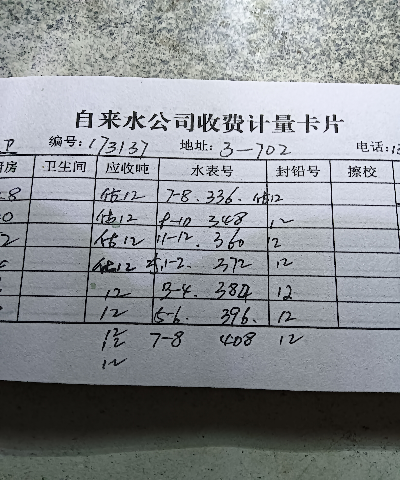 自来水公司收费计量卡片
卫 编号: 173137 地址: 3-702 电话:13
厨房 卫生间 应收吨 水表号 封铅号 擦校
8 估12 7-8. 336. 估12
0 估12 9-10 348 12
2 估12 11-12. 360 12
估12 1-2. 372 12
12 3-4. 384 12
12 5-6. 396. 12
12 7-8 408 12
12